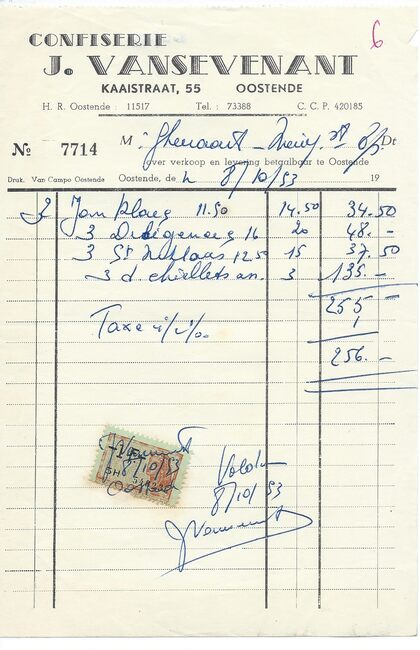 6
CONFISERIE
J. VANSEVENANT
KAAISTRAAT, 55 OOSTENDE
H. R. Oostende : 11517 Tel. : 73388 C. C. P. 420185
M Dt
№ 7714
over verkoop en levering betaalbaar te Oostende
Druk. Van Campo Oostende Oostende, de 8/10/53 19
3 Jan 11.50 14.50 34.50
3 16 20 48.-
3 St 12.50 15 37.50
3 d 3 135.-
255
Taxe 1
256.-
8/10/53
Oostende
Voldaan
8/10/53